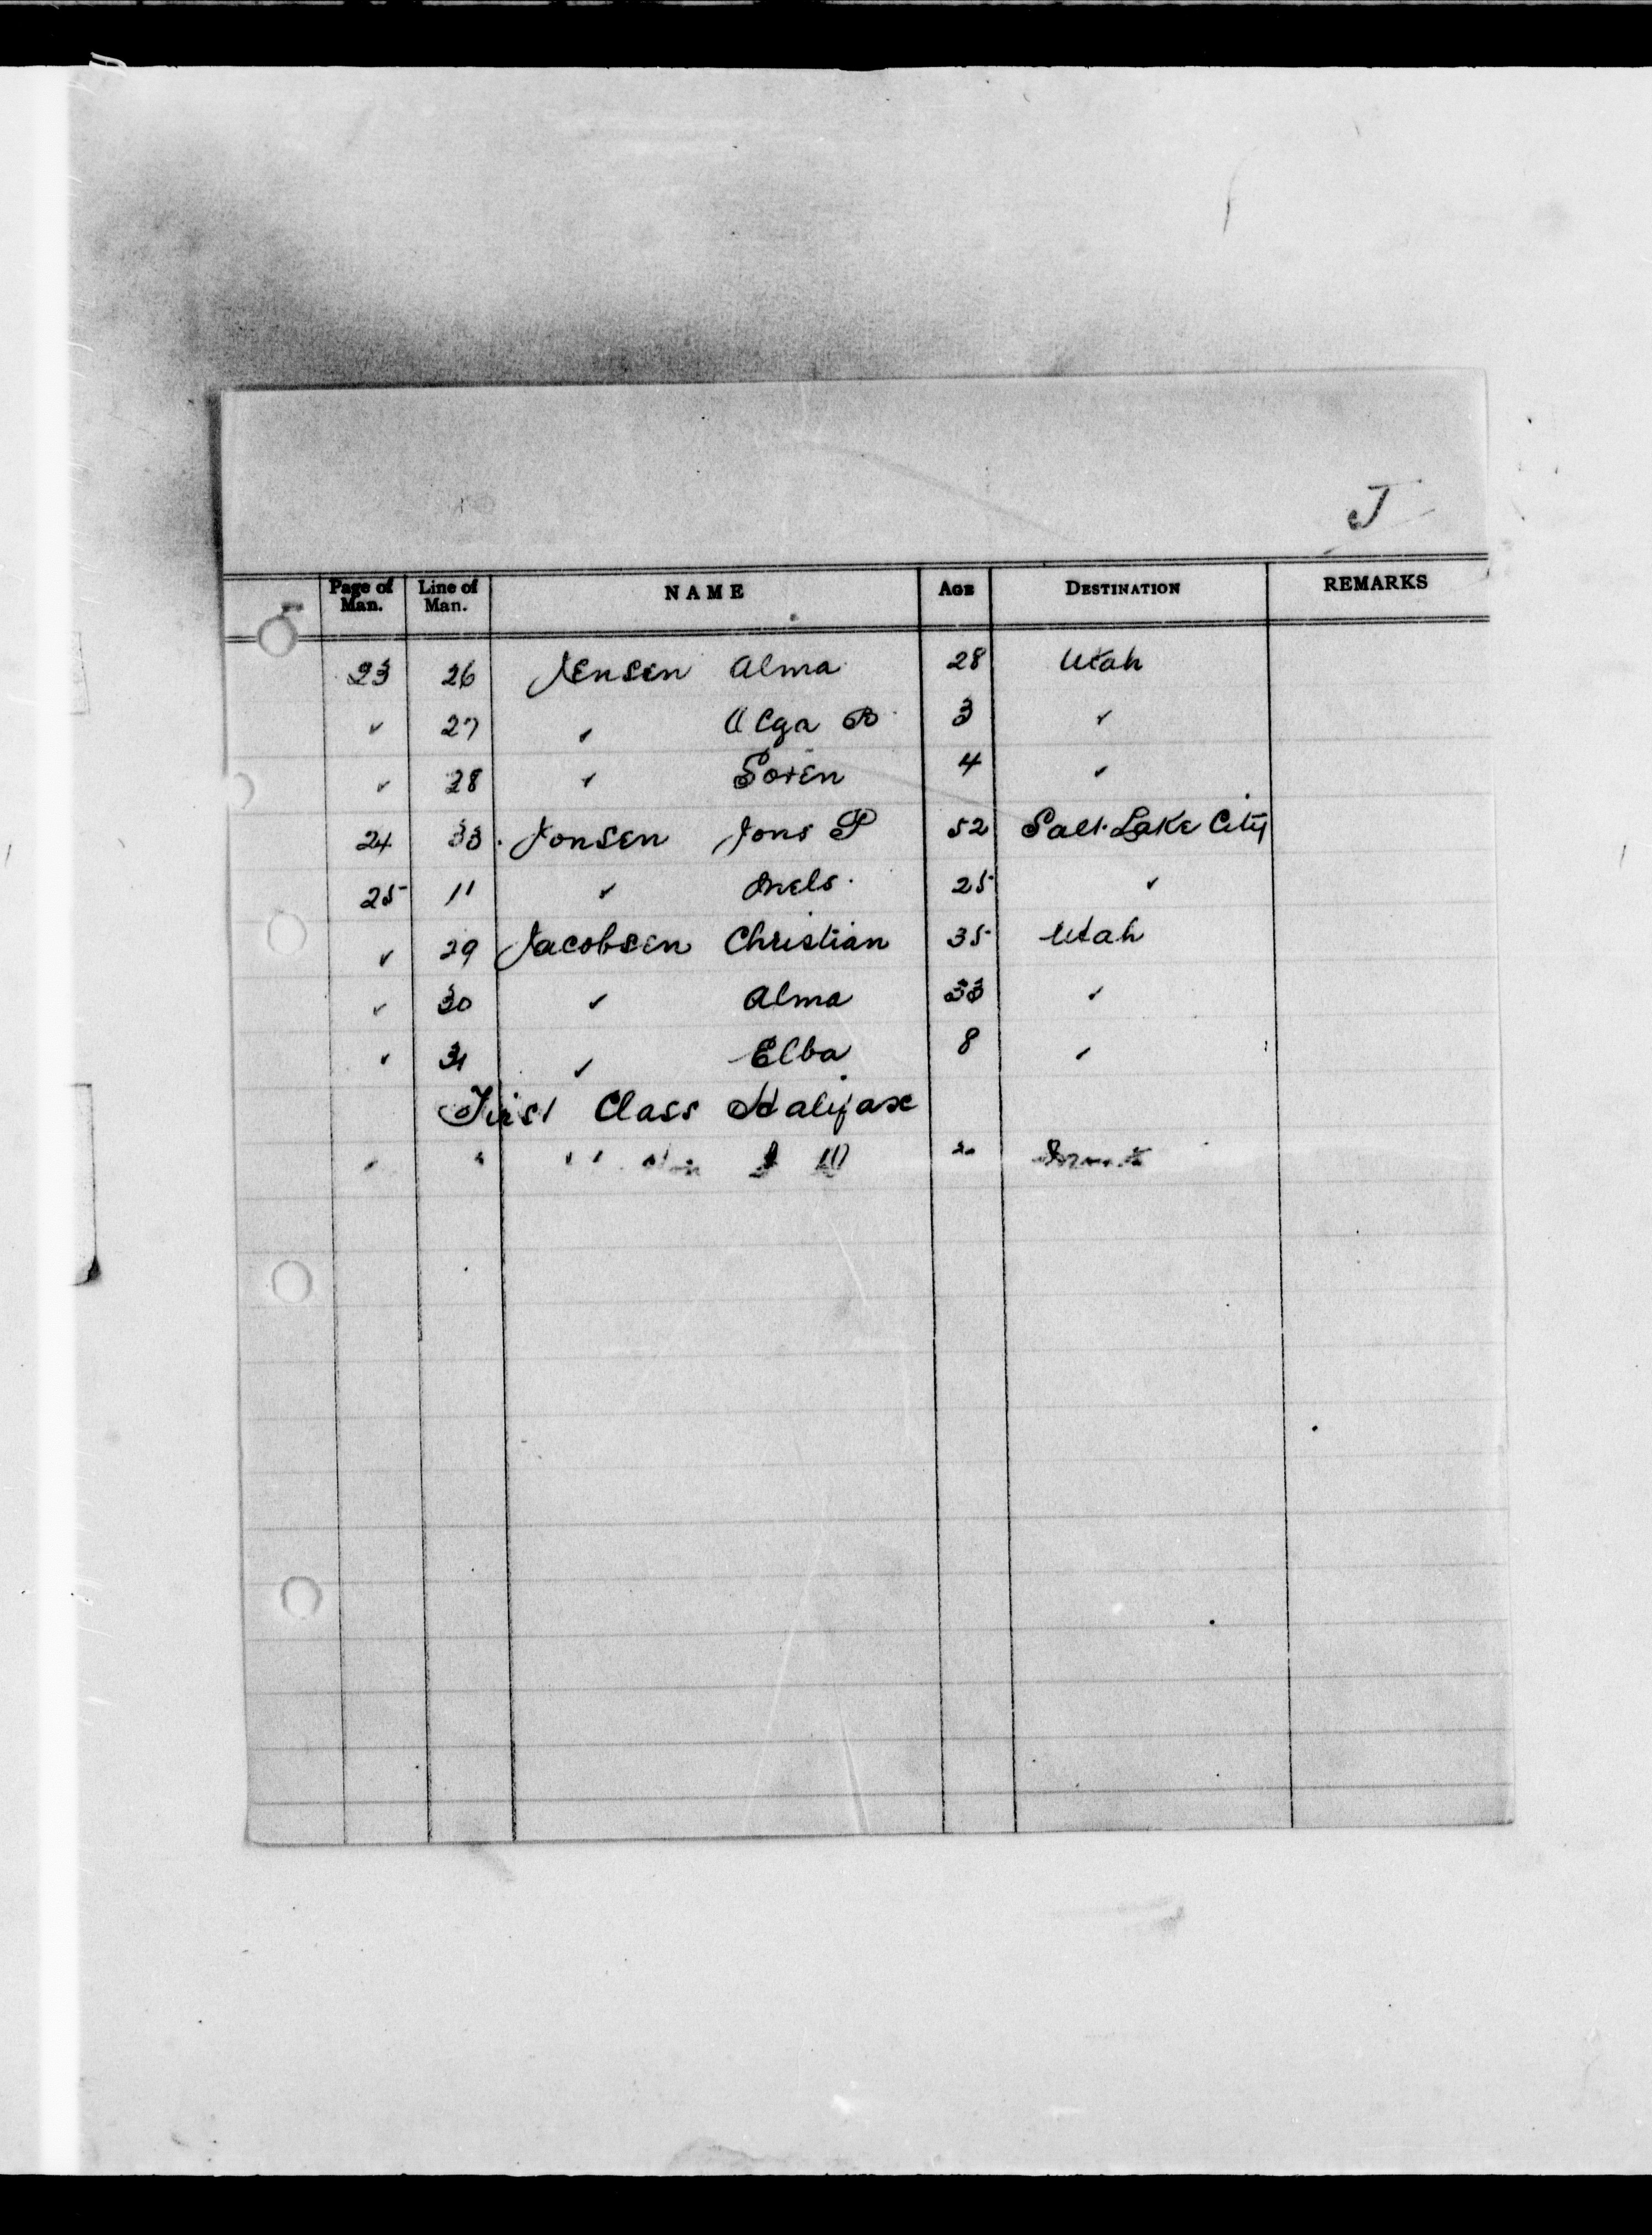 J
Page of Man. Line of Man. NAME AGE DESTINATION REMARKS
23 26 Jensen Alma 28 Utah
✓ 27 ✓ Olga B 3 ✓
✓ 28 ✓ Soren 4 ✓
24 33 Jonsen Jons P 52 Salt Lake City
25 11 ✓ Niels 25 ✓
✓ 29 Jacobsen Christian 35 Utah
✓ 30 ✓ Alma 33 ✓
✓ 31 ✓ Elba 8 ✓
First Class Halifax